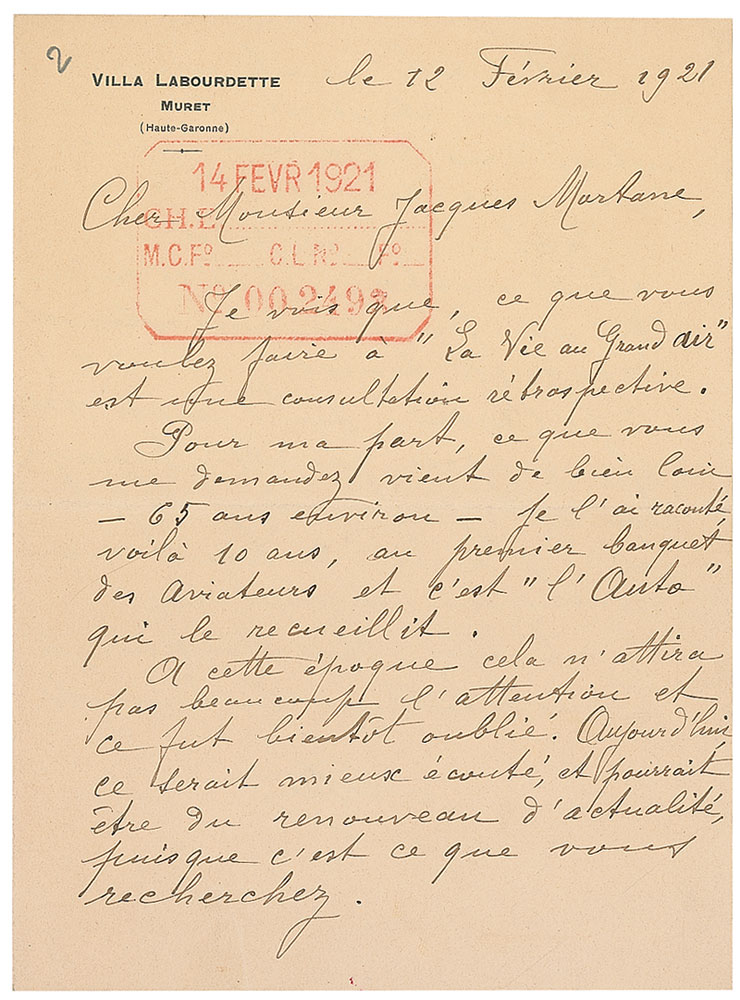 2
VILLA LABOURDETTE
MURET
(Haute-Garonne)
le 12 Février 1921
14 FEVR 1921
Cher Monsieur Jacques Mortane,
CH.
M.C.Fº C.L.Nº Fº
Nº 002493
Je vois que, ce que vous
voulez faire à "La Vie au Grand air"
est une consultation rétrospective.
Pour ma part, ce que vous
me demandez vient de bien loin
– 65 ans environ – Je l'ai raconté,
voilà 10 ans, au premier banquet
des Aviateurs et c'est "l'Auto"
qui le recueillit.
A cette époque cela n'attira
pas beaucoup l'attention et
ce fut bientôt oublié. Aujourd'hui
ce serait mieux écouté, et pourrait
être du renouveau d'actualité,
puisque c'est ce que vous
recherchez.